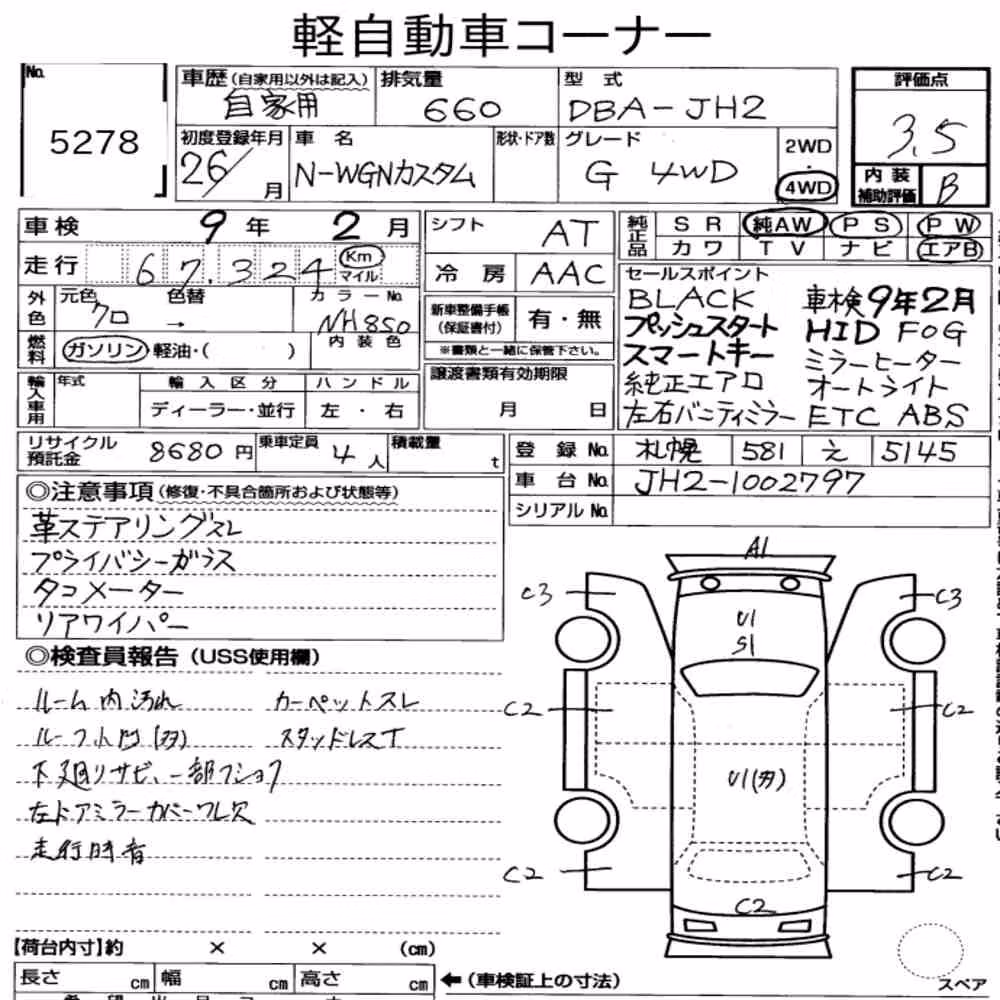 軽自動車コーナー
No.
5278
車歴(自家用以外は記入)
自家用
排気量
660
型 式
DBA-JH2
初度登録年月
26/ 月
車 名
N-WGNカスタム
形状・ドア数
グレード
G 4WD
2WD
・
4WD
評価点
3.5
内装
補助評価
B
車検 9年 2月
走行 67.324 Km マイル
シフト AT
冷房 AAC
純正品
SR 純AW PS PW
カワ TV ナビ エアB
外色
元色 クロ
色替 →
カラーNo. NH850
内装色
燃料
ガソリン・軽油・( )
新車整備手帳
(保証書付)
有・無
※書類と一緒に保管下さい。
セールスポイント
BLACK 車検9年2月
プッシュスタート HID FOG
スマートキー ミラーヒーター
純正エアロ オートライト
左右バニティミラー ETC ABS
輸入車用
年式
輸入区分
ハンドル
ディーラー・並行
左・右
譲渡書類有効期限
月 日
リサイクル
預託金
8680円
乗車定員
4人
積載量
t
登録No. 札幌 581 え 5145
車台No. JH2-1002797
シリアルNo.
◎注意事項(修復・不具合箇所および状態等)
革ステアリングスレ
プライバシーガラス
タコメーター
リアワイパー
◎検査員報告(USS使用欄)
ルーム内汚れ カーペットスレ
ルーフ小凹(多) スタッドレスT
下廻りサビ、一部フショク
左ドアミラーカバーワレ欠
走行時音
A1
C3
C3
U1
S1
C2
C2
U1(多)
C2
C2
C2
【荷台内寸】約 × × (cm)
長さ cm 幅 cm 高さ cm
←(車検証上の寸法)
スペア